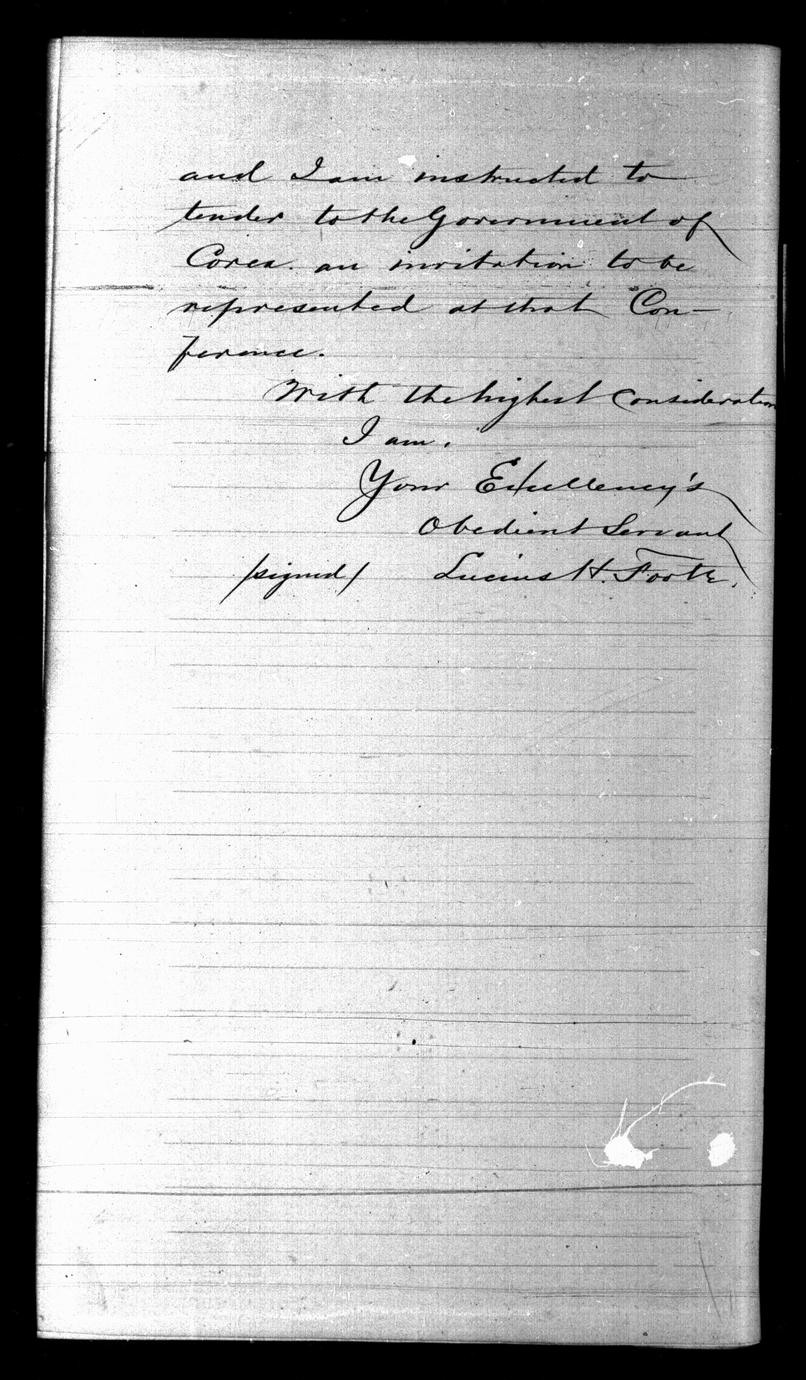 and I am instructed to
tender to the Government of
Corea. an invitation to be
represented at that Con-
ference.
With the highest Consideration
I am.
Your Excellency's
Obedient Servant
/signed/ Lucius H. Foote.